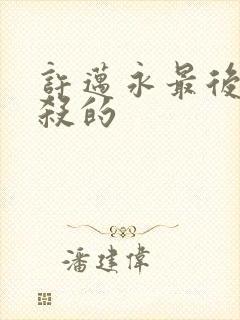 許邁永最後
殺的
潘建偉